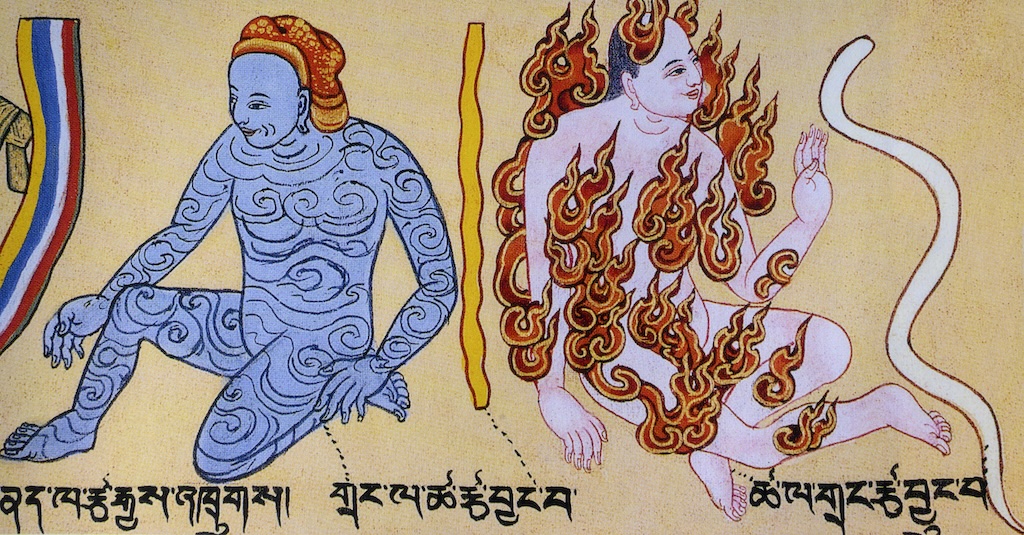 ནད་ལ་རྩ་རྒྱས་འཁྲུགས། གྲང་ལ་ཚ་རྩ་བྱུང་བ་ ཚ་ལ་གྲང་རྩ་བྱུང་བ